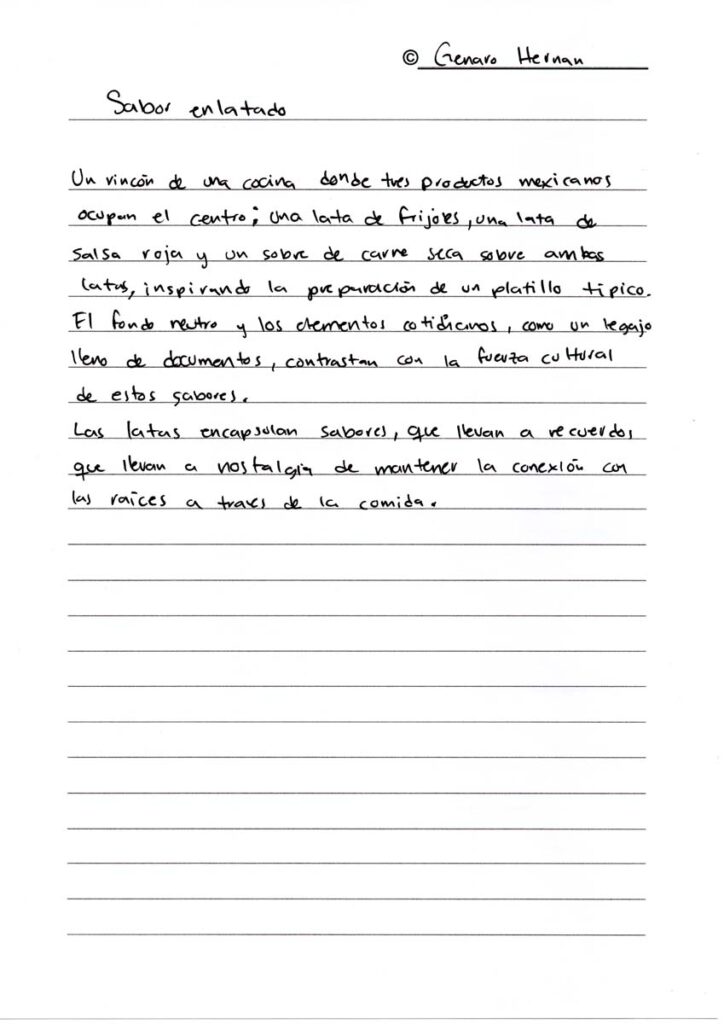 © Genaro Hernan
Sabor enlatado
Un rincón de una cocina donde tres productos mexicanos
ocupan el centro; una lata de frijoles, una lata de
salsa roja y un sobre de carne seca sobre ambas
latas, inspirando la preparación de un platillo tipico.
El fondo neutro y los elementos cotidianos, como un legajo
lleno de documentos, contrastan con la fuerza cultural
de estos sabores.
Las latas encapsulan sabores, que llevan a recuerdos
que llevan a nostalgia de mantener la conexión con
las raíces a traves de la comida.